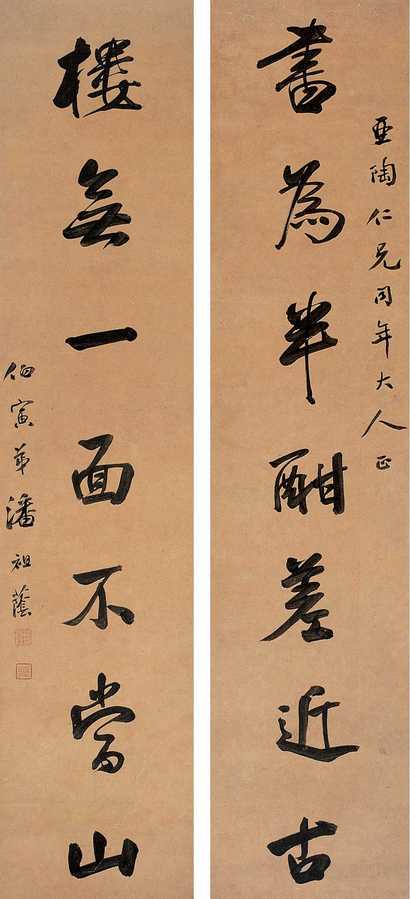 亜陶仁兄同年大人正
書為半酣差近古
樓無一面不當山
伯寅弟潘祖蔭